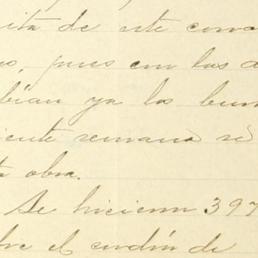 ita de este conv
os, pues con las d
bían ya los bue
iente semana se
a obra.
Se hicieron 397
bre el cordón de